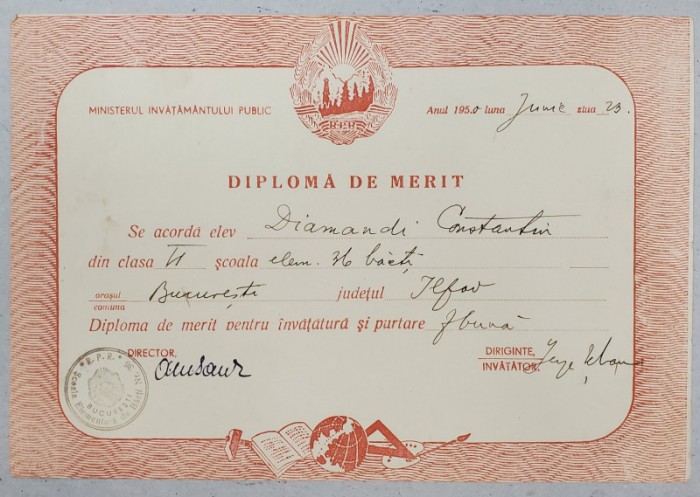 R.P.R.
MINISTERUL INVĂȚĂMÂNTULUI PUBLIC
Anul 1950 luna Junie ziua 23.
DIPLOMĂ DE MERIT
Se acordă elev Diamandi Constantin
din clasa II școala elem. 36 băeți
orașul București județul Ilfov
comuna
Diploma de merit pentru învățătură și purtare f bună
DIRECTOR,
DIRIGINTE,
INVĂȚĂTOR,
R.P.R.
BUCUREȘTI